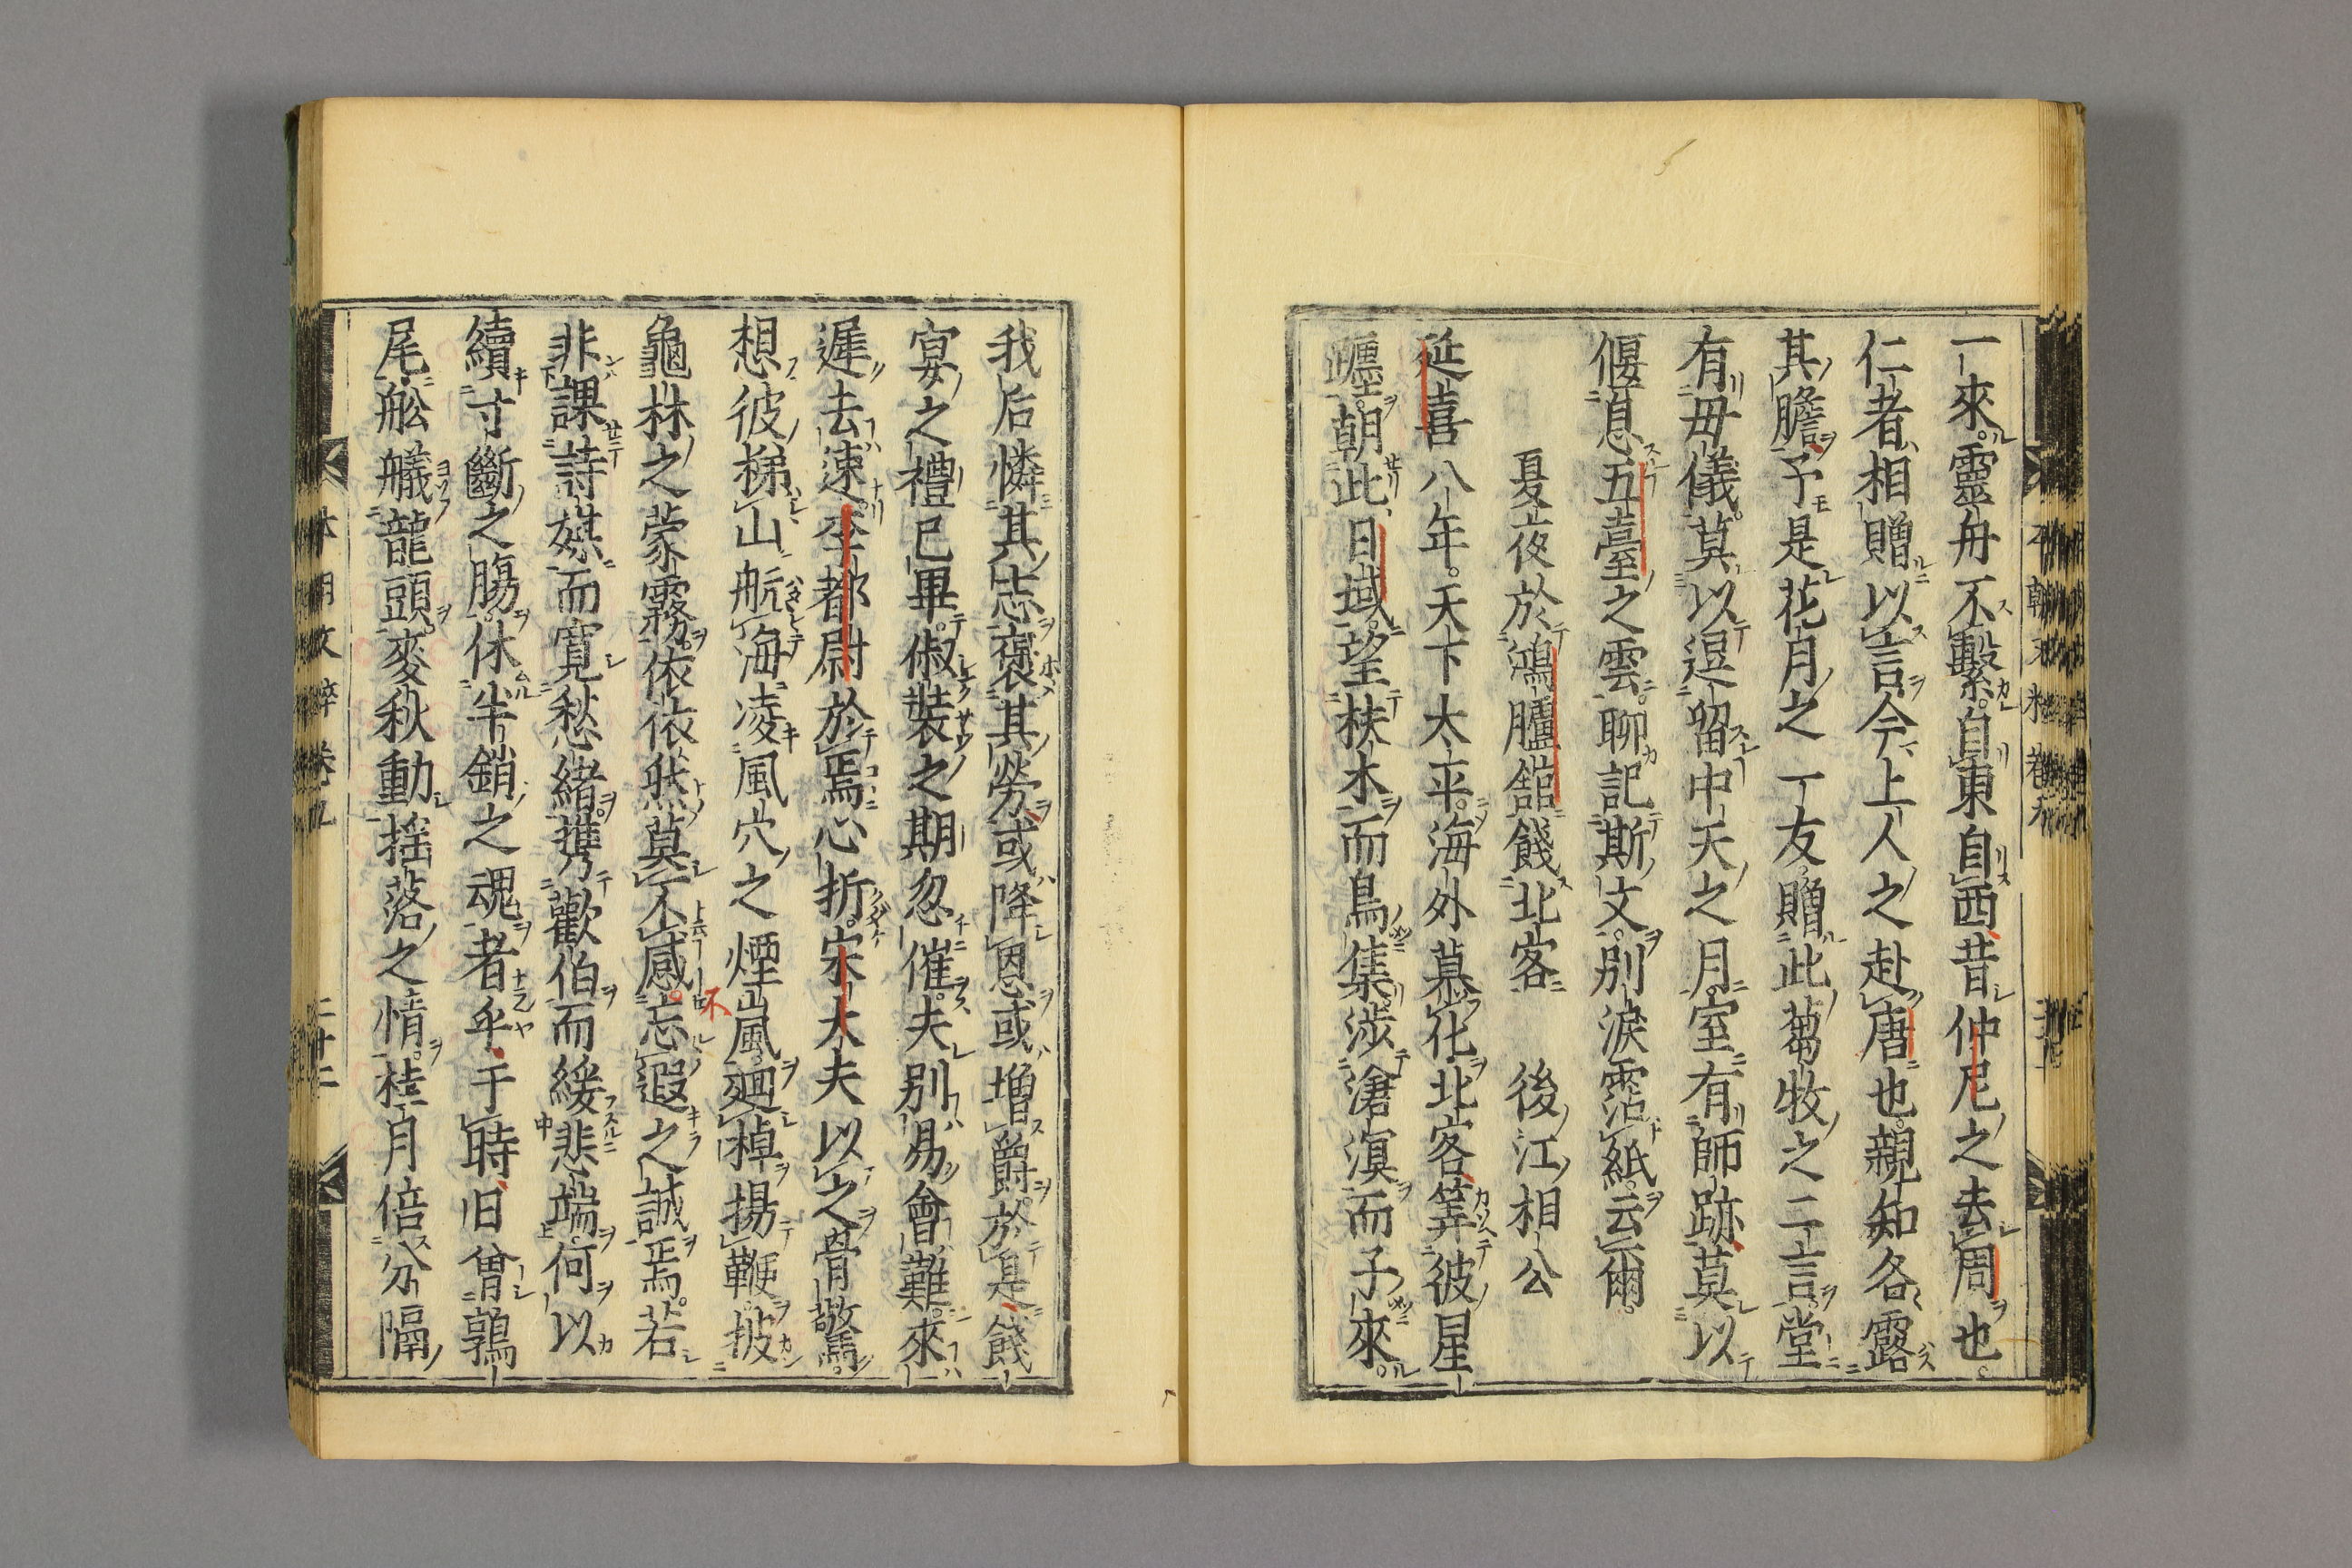 一來靈舟不繫自東自西昔仲尼之去周也
仁者相贈以言今上人之赴唐也親知各露
其膽予是花月之一友贈此蒭牧之二言堂
有母儀莫以逗留中天之月室有師跡莫以
偃息五臺之雲聊記斯文別淚霑紙云爾
夏夜於鴻臚館餞北客　後江相公
延喜八年天下太平海外慕化北客筭彼星
躔朝此日域望扶木而鳥集渉滄溟而子來
我后憐其志褒其勞或降恩或増爵於是餞
宴之禮已畢俶裝之期忽催夫別易會難來
遲去速李都尉於焉心折宋大夫以之骨驚
想彼梯山航海凌風穴之煙嵐廻棹揚鞭披
龜林之蒙霧依依然莫不感忘遐之誠焉若
非課詩媒而寛愁緒携歡伯而緩悲端何以
續寸斷之膓休半銷之魂者乎于時日會鶉
尾舩艤龍頭麥秋動揺落之情桂月倍分隔
本朝文粹卷九　二十二